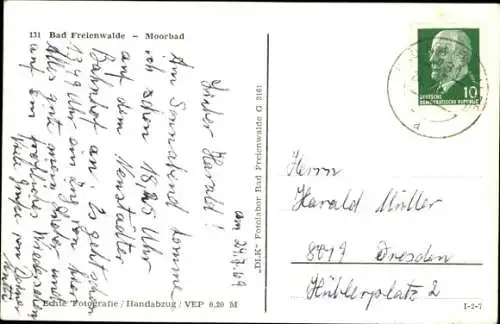 131 Bad Freienwalde – Moorbad
am 24.7.69
Lieber Harald!
Am Sonnabend komme
ich schon 18,25 Uhr
auf dem Neustädter
Bahnhof an. Es geht schon
13,49 Uhr ein Zug von hier
Alles gute mein und
auf ein Wiedersehn
Viele Grüße von
Echte Fotografie / Handabzug / VEP 0,20 M
„DLK“ Fotolabor Bad Freienwalde G 3161
DEUTSCHE
DEMOKRATISCHE REPUBLIK
10
Herrn
Harald Müller
8019 Dresden
Hüblerplatz 2
I-2-7